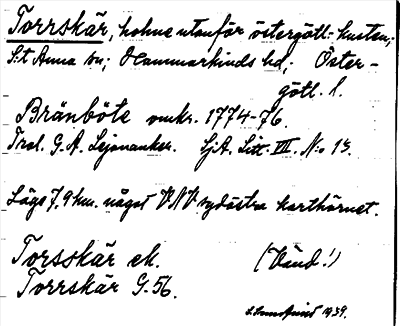 Torrskär, holme utanför östergötl.-kusten;
S:t Anna sn; Hammarkinds hd; Öster-
götl. l.
Bränböte omkr. 1774-76.
Trol. G. A. Lejonanker. SjA. Litt. VII. No 13.
Läge 7,9 km. något V.N.V. sydöstra karthörnet.
Torsskär ek. (Vänd!)
Torrskär G. 56.
1939.